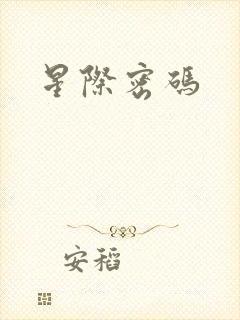 星際密碼
安稻